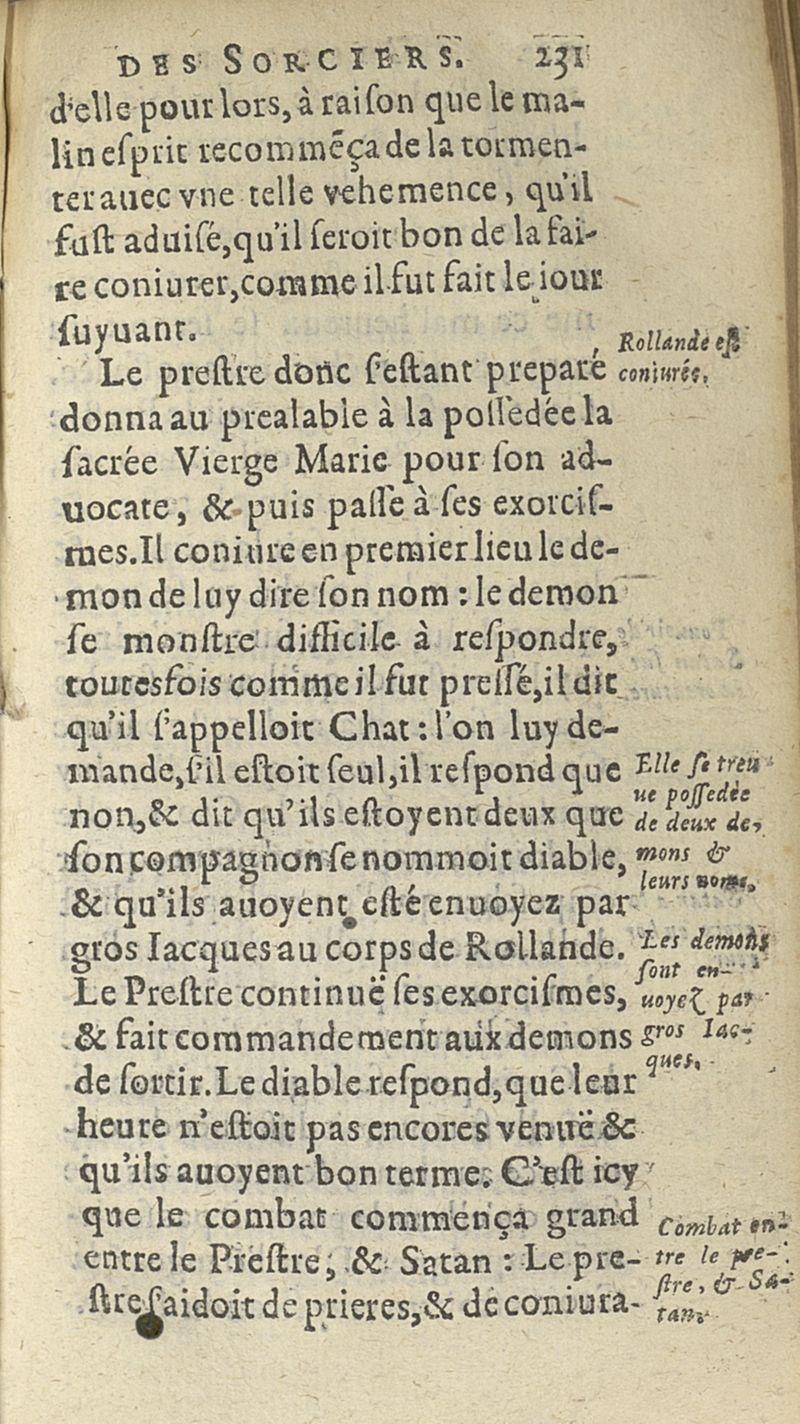 DES SORCIERS. 231
d'elle pour lors, à raiſon que le ma-
lin eſprit recommẽça de la tormen-
ter auec vne telle vehemence, qu'il
fuſt aduiſé, qu'il ſeroit bon de la fai-
re coniurer, comme il fut fait le iour
ſuyuant.
Le preſtre donc s'eſtant preparé
Rollande eſt
coniurée.
donna au prealable à la poſſedée la
ſacrée Vierge Marie pour ſon ad-
uocate, & puis paſſe à ſes exorciſ-
mes. Il coniure en premier lieu le de-
mon de luy dire ſon nom : le demon
ſe monſtre difficile à reſpondre,
toutesfois comme il fut preſſé, il dit
qu'il ſ'appelloit Chat : l'on luy de-
mande, ſ'il eſtoit ſeul, il reſpond que
non, & dit qu'ils eſtoyent deux que
ſon compagnon ſe nommoit diable,
& qu'ils auoyent eſté enuoyez par
Elle ſe treu
ue poſſedée
de deux de-
mons &
leurs noms.
gros Iacques au corps de Rollande.
Le Preſtre continuë ſes exorciſmes,
& fait commandement aux demons
de ſortir. Le diable reſpond, que leur
Les demons
ſont en-
uoyez par
gros Iac-
ques.
heure n'eſtoit pas encores venuë &
qu'ils auoyent bon terme. C'eſt icy
que le combat commença grand
entre le Preſtre, & Satan : Le pre-
ſtre ſ'aidoit de prieres, & de coniura-
Combat en-
tre le pre-
ſtre, & Sa-
tan.